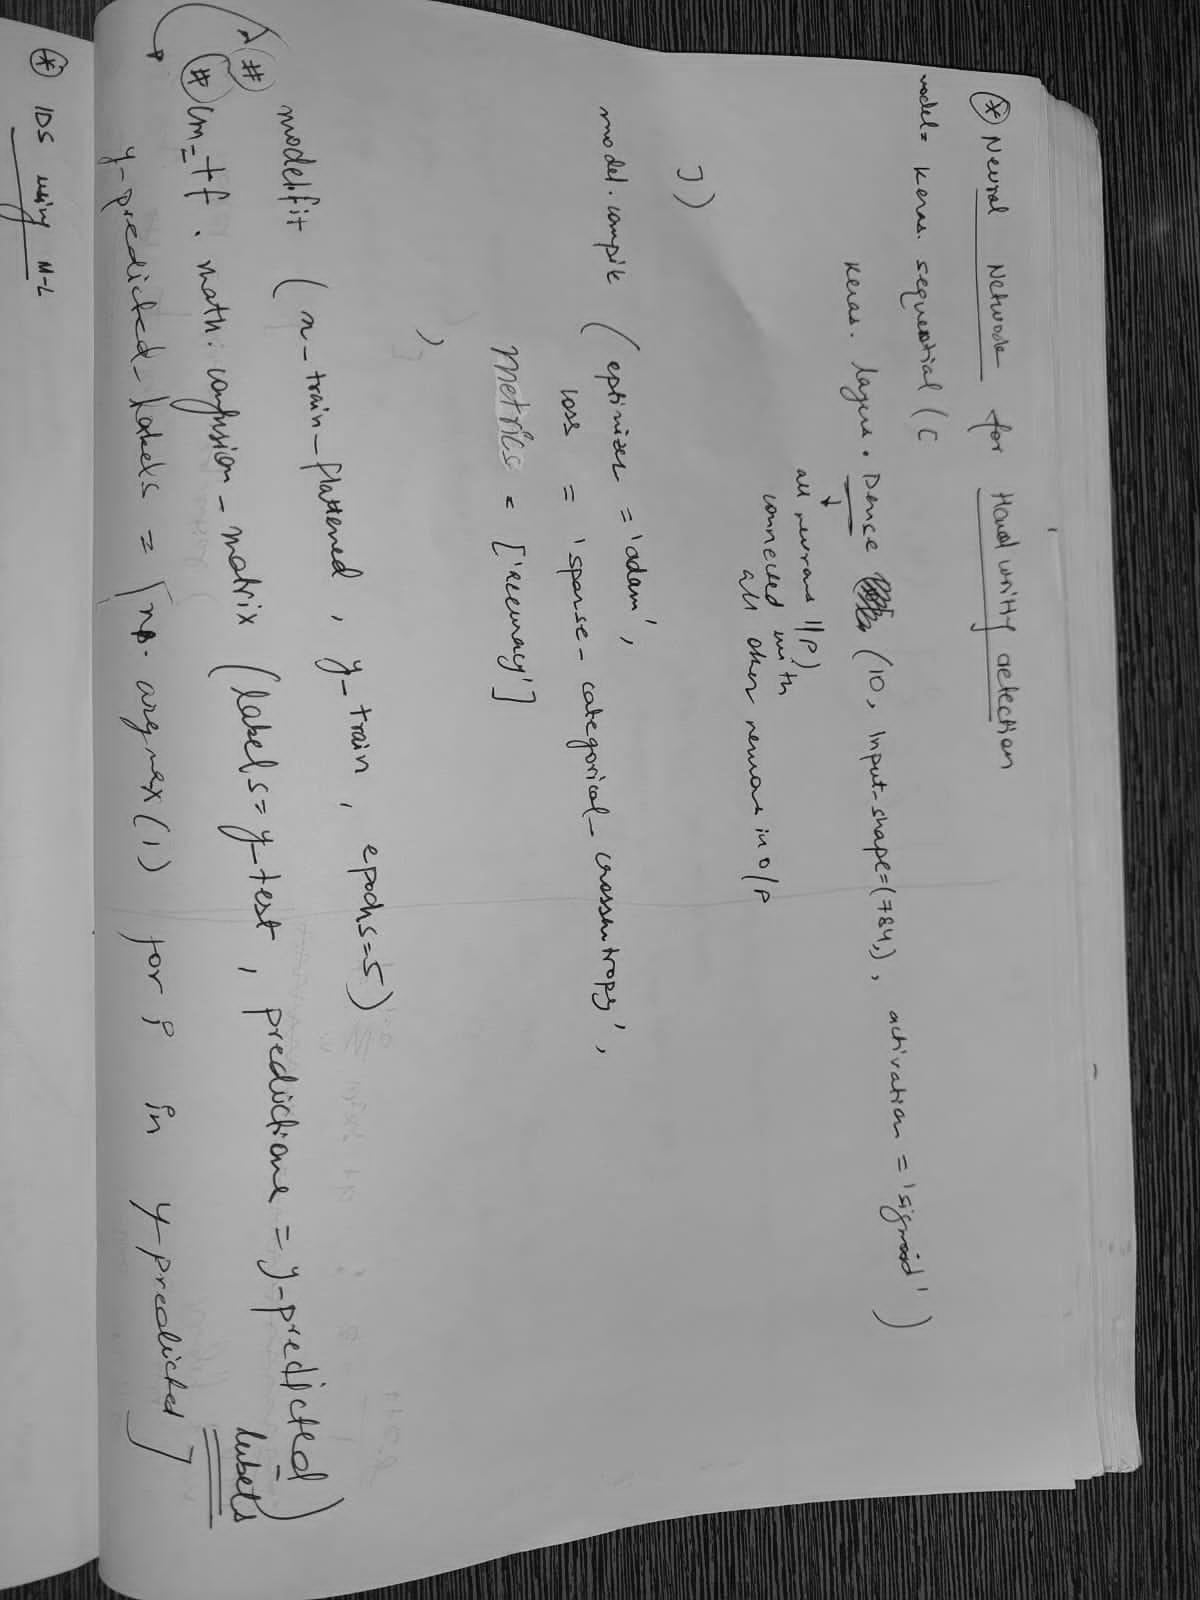 * Neural Network for Handwritty detection
model= keras. sequential ([
keras. layers. Dense (10, input-shape=(784,), activation = 'sigmoid')
all neurons I/P)
connected with
all other neurons in O/P
])
model. compile (optimizer = 'adam',
loss = 'sparse-categorical-crossentropy',
metrics = ['accuracy']
)
# model.fit (x-train-flattened, y-train, epochs=5)
# cm= tf. math. confusion-matrix (labels=y-test, predictions = y-predicted-
labels)
y-predicted-labels = [np. argmax(i) for i in y-predicted]
* IDS using M-L